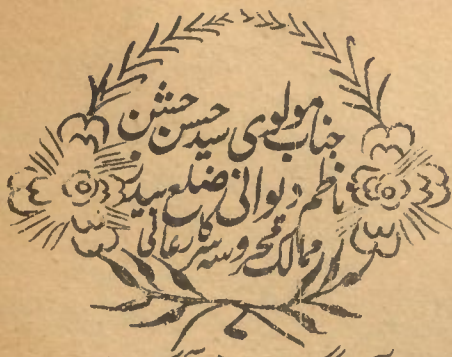 جناب مولوی سید حسن حسن
ناظم دیوانی ضلع بیدر
ممالک محروسہ سرکار عالی